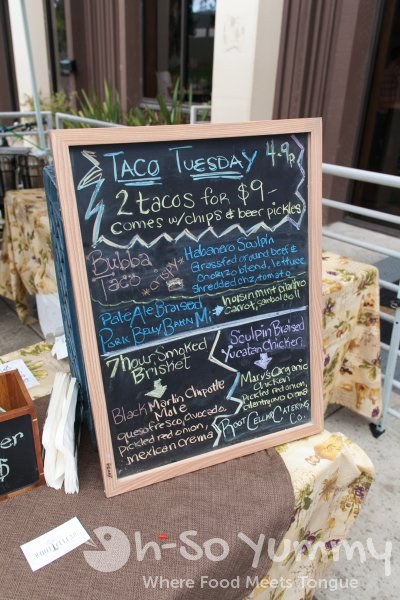 TACO TUESDAY 4-9p
2 tacos for $9-
comes w/chips & beer pickles
Bubba
Tacos
Habanero Sculpin
Grassfed ground beef &
chorizo blend, lettuce
shredded chz, tomato
Pale Ale Braised
Pork Belly Bahn Mi
hoisin mint cilantro
carrot, sambal aoli
7 hour Smoked
Brisket
Black Marlin Chipotle
Mole
queso fresco, avocado
pickled red onion,
mexican crema
Sculpin Braised
Yucatan Chicken
Mary's Organic
Chicken
Pickled red onion,
cilantro crema
Root Cellar Catering
Co.
$
Oh-So Yummy
Where Food Meets Tongue